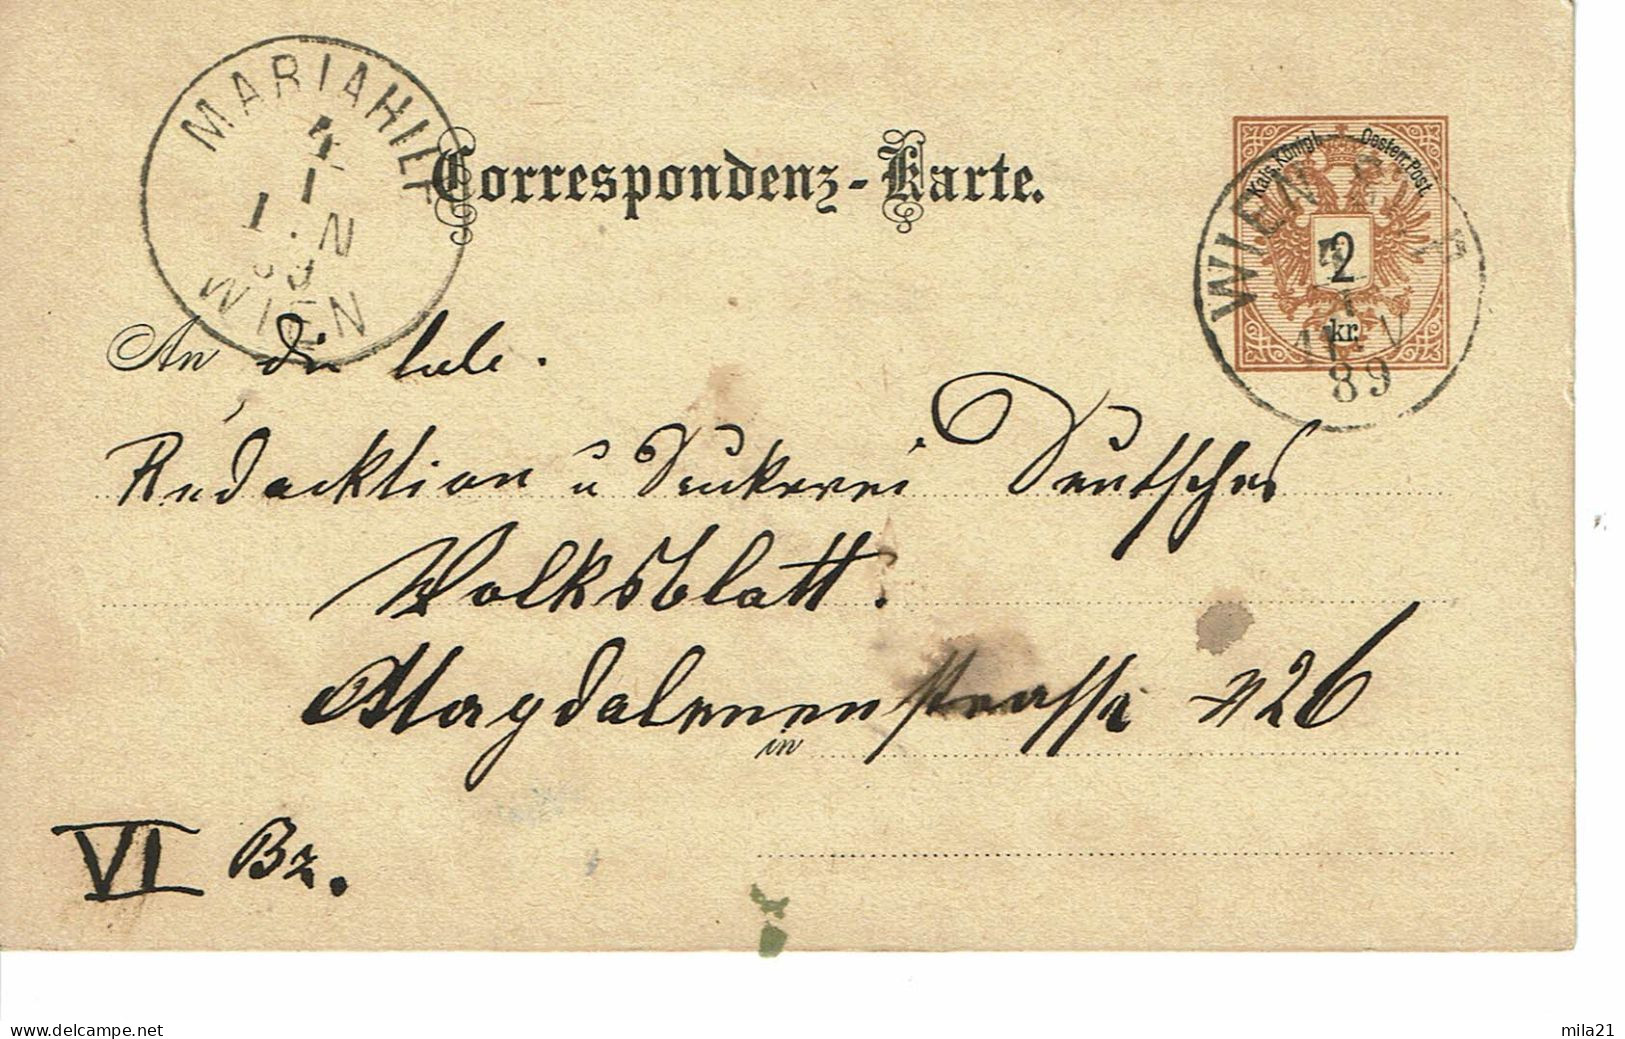 MARIAHILF
4
1
1.N
89
WIEN
Correspondenz-Karte.
Kais. Königl. Oesterr. Post.
2
kr.
WIEN
4
1
11.V
89
An die löbl.
Redacktion u Druckerei Deutsches
Volksblatt.
Magdalenenstrasse N 26
in
VI Bz.
www.delcampe.net
mila21